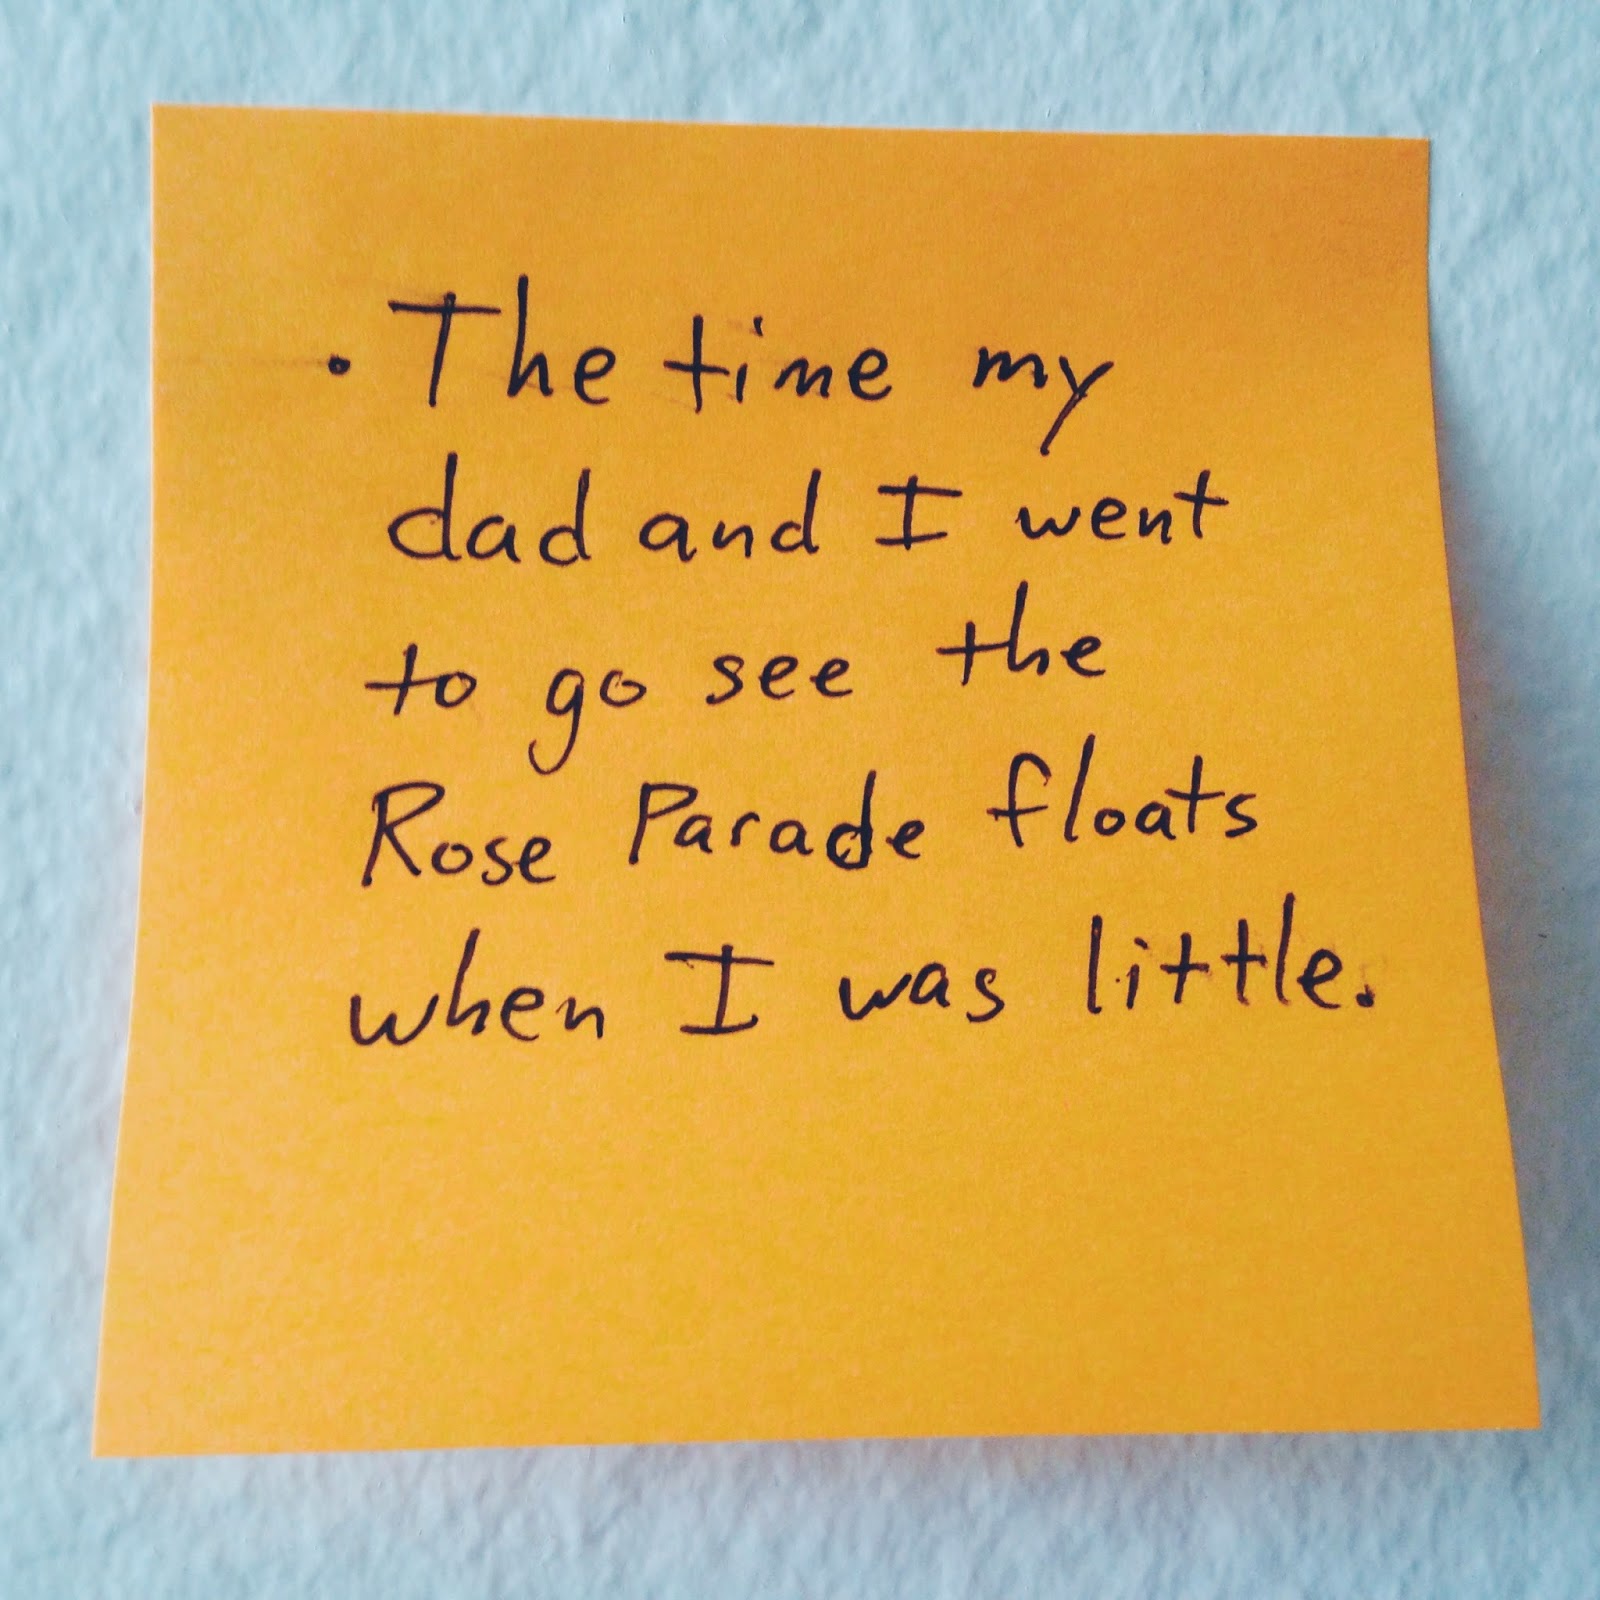 · The time my
dad and I went
to go see the
Rose Parade floats
when I was little.